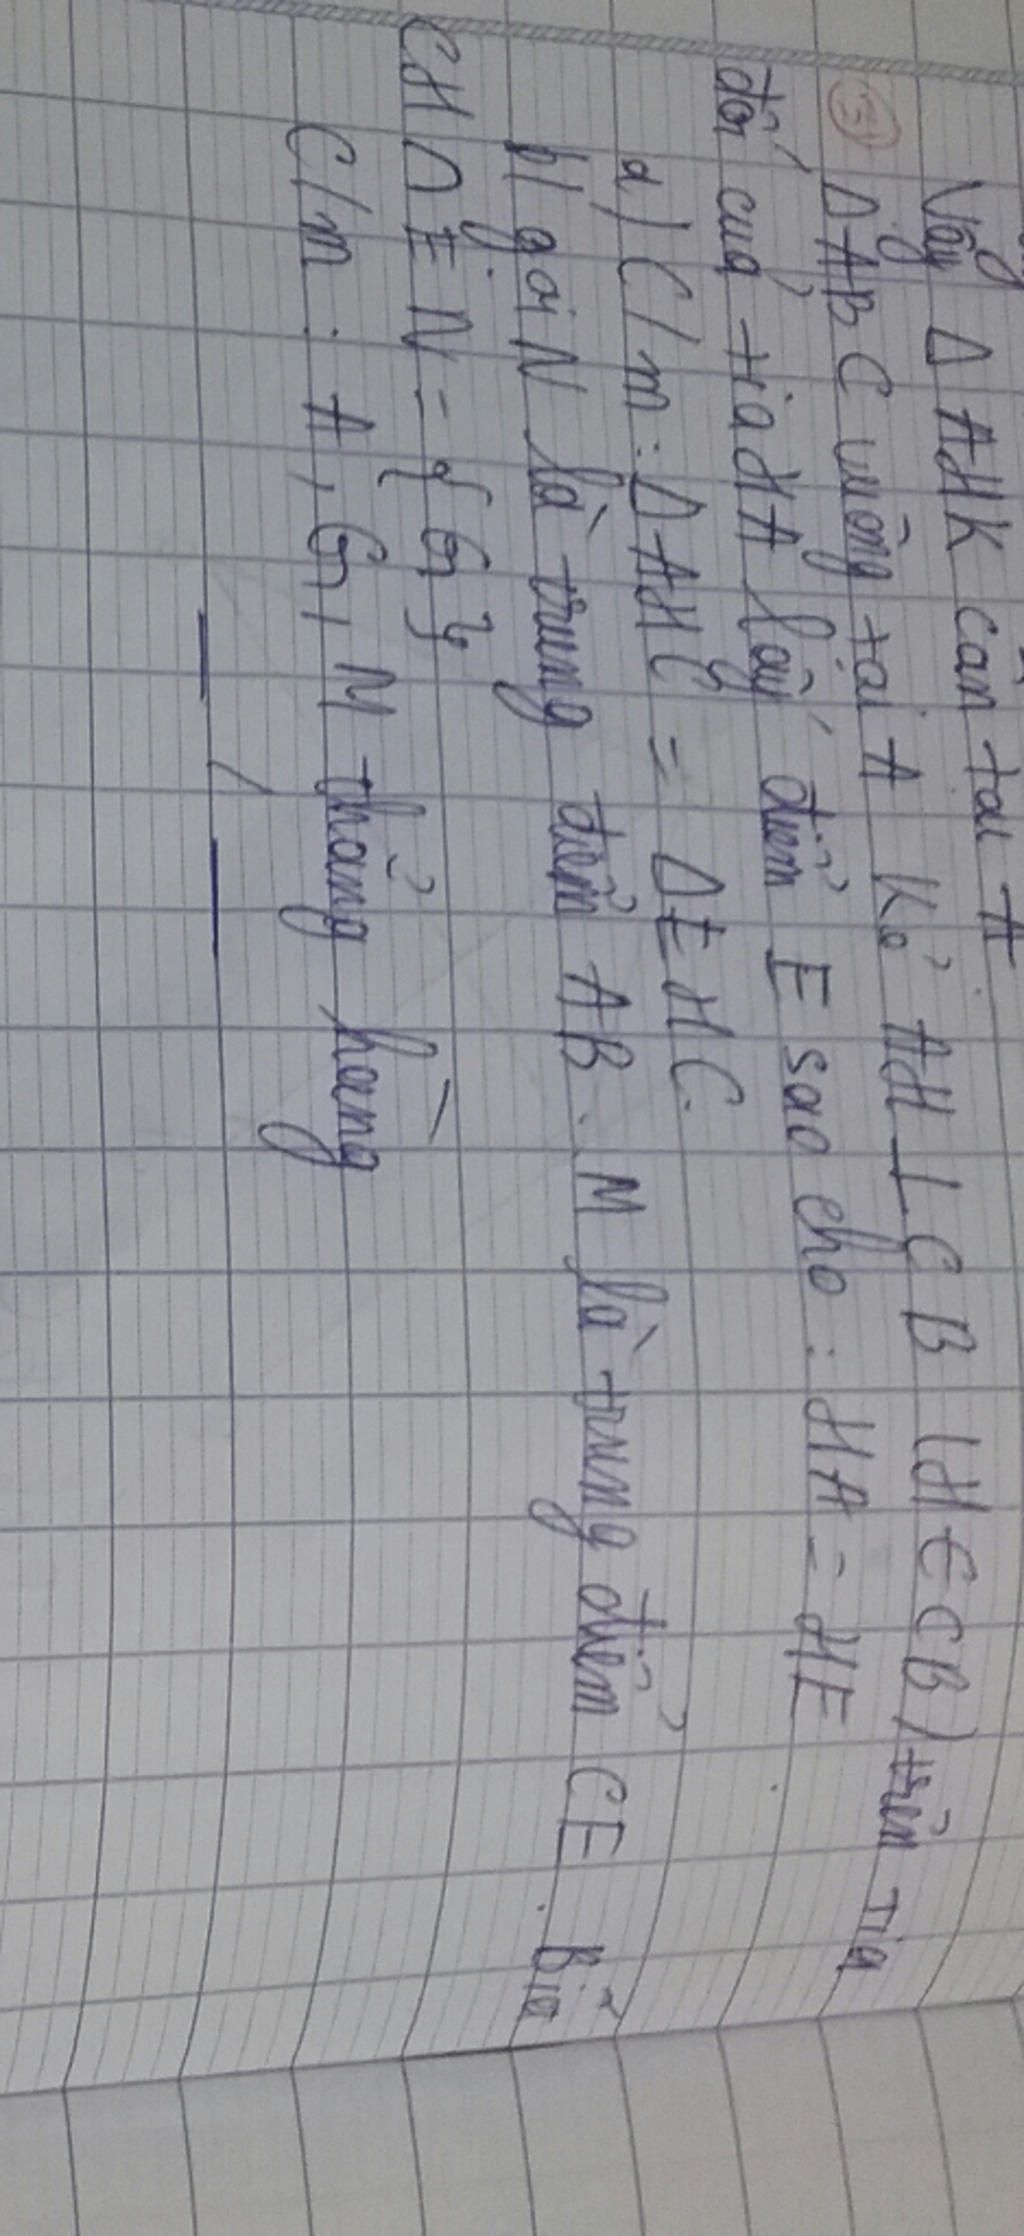 Vậy Δ AHK cân tại A
③ Δ ABC vuông tại A Kẻ AH ⊥ CB (H ∈ CB) trên tia
đối của tia HA lấy điểm E sao cho : HA = HE
a) C/m : Δ AHC = Δ EHC.
b) gọi N là trung điểm AB. M là trung điểm CE. Biết
CH ∩ EN = { G }
C/m : A, G, M thẳng hàng